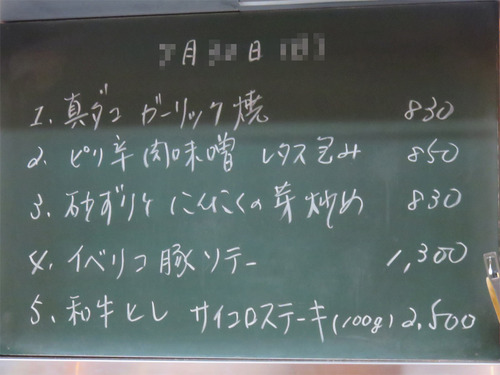 月 日
1. 真ダコ ガーリック焼 830
2. ピリ辛肉味噌 レタス包み 850
3. 砂ずりと にんにくの芽炒め 830
4. イベリコ豚ソテー 1,300
5. 和牛ヒレ サイコロステーキ(100g) 2,500